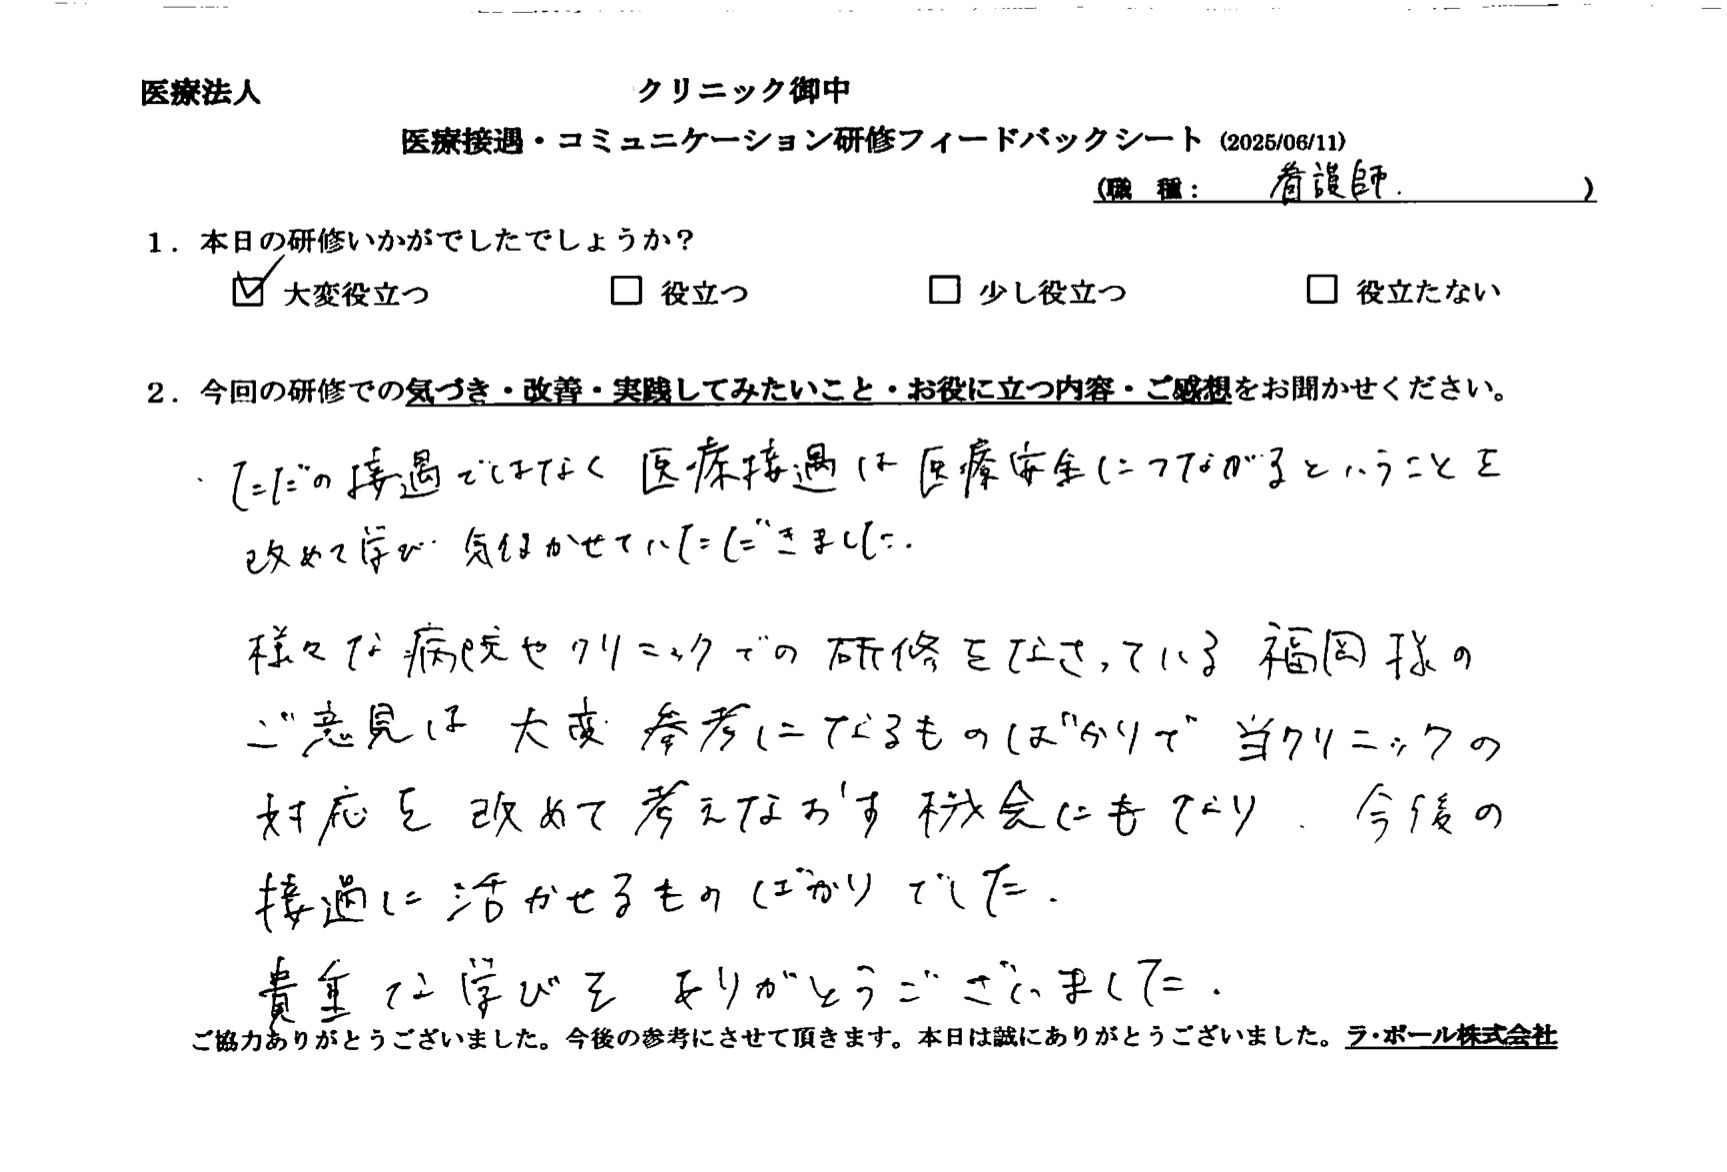 医療法人　　　　　　　　　　　　クリニック御中
医療接遇・コミュニケーション研修フィードバックシート (2025/06/11)
(職　種：　看護師.　)
１．本日の研修いかがでしたでしょうか？
☑ 大変役立つ　□ 役立つ　□ 少し役立つ　□ 役立たない
２．今回の研修での気づき・改善・実践してみたいこと・お役に立つ内容・ご感想をお聞かせください。
・ただの接遇ではなく 医療接遇は医療安全につながるということを
改めて学び 気付かせていただきました.
様々な病院やクリニックでの研修をなさっている福岡様の
ご意見は 大変 参考になるものばかりで 当クリニックの
対応を 改めて考えなおす機会にもなり、今後の
接遇に活かせるものばかりでした.
貴重な学びを ありがとうございました.
ご協力ありがとうございました。今後の参考にさせて頂きます。本日は誠にありがとうございました。ラ・ポール株式会社